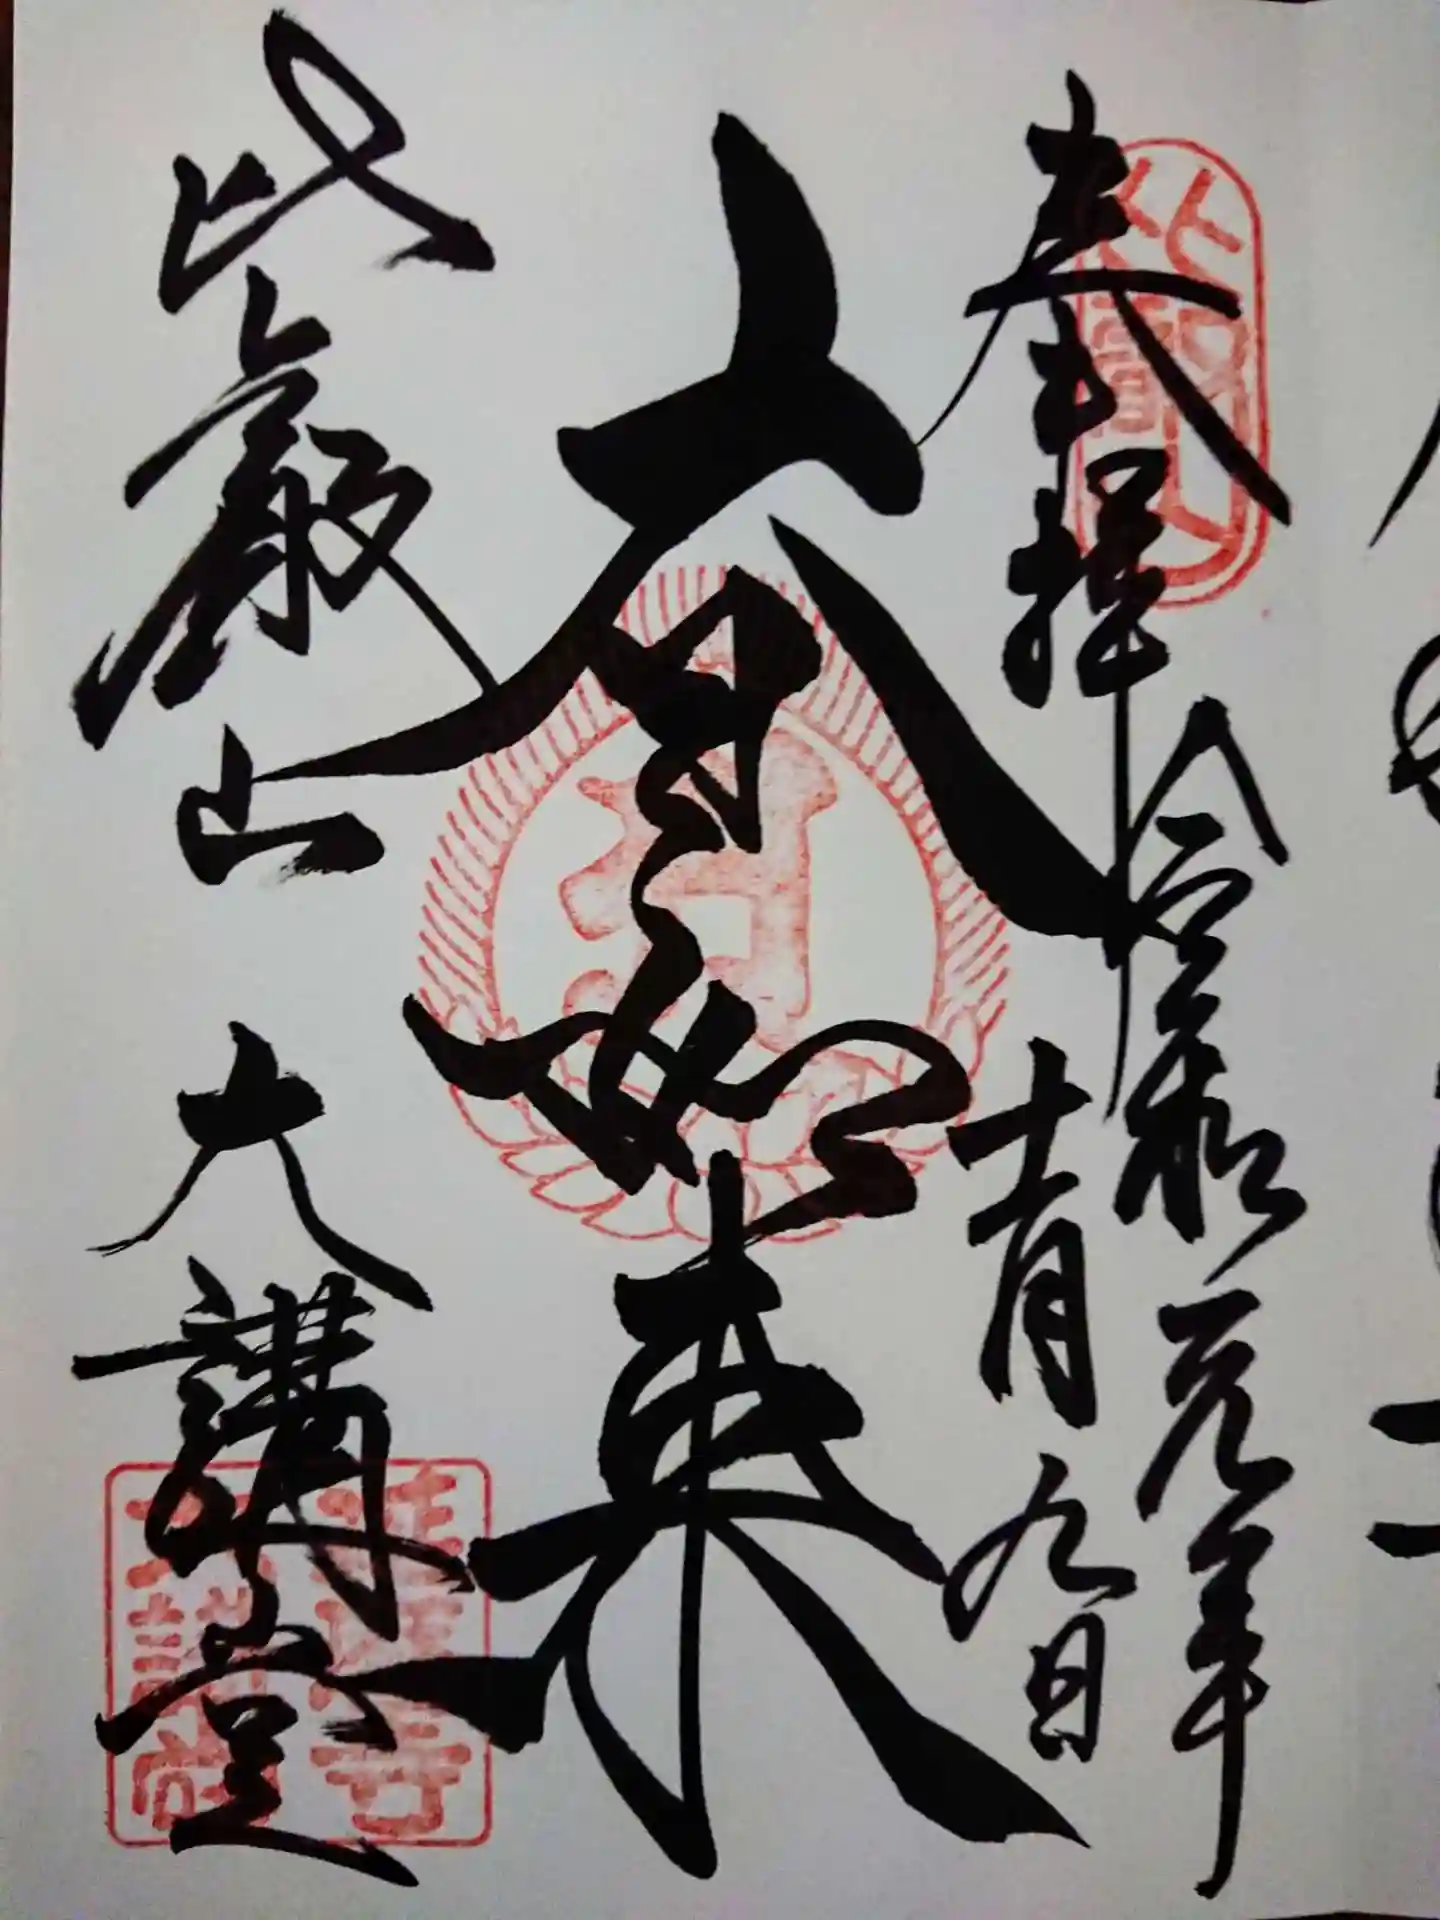 奉拝
令和元年
十一月九日
大日如来
比叡山
大講堂
比叡山
延暦寺
大講堂